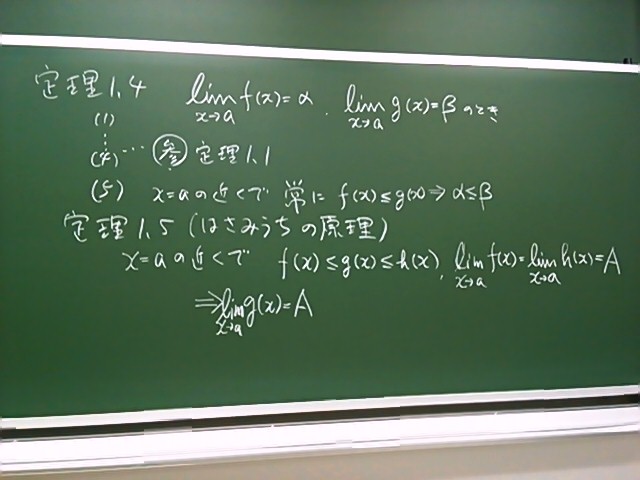 定理1.4 lim_{x→a} f(x)=α , lim_{x→a} g(x)=β のとき
(1)
⋮
(4)… 参 定理1.1
(5) x=aの近くで 常に f(x)≤g(x)⇒α≤β
定理1.5 (はさみうちの原理)
x=aの近くで f(x)≤g(x)≤h(x), lim_{x→a} f(x)=lim_{x→a} h(x)=A
⇒lim_{x→a} g(x)=A